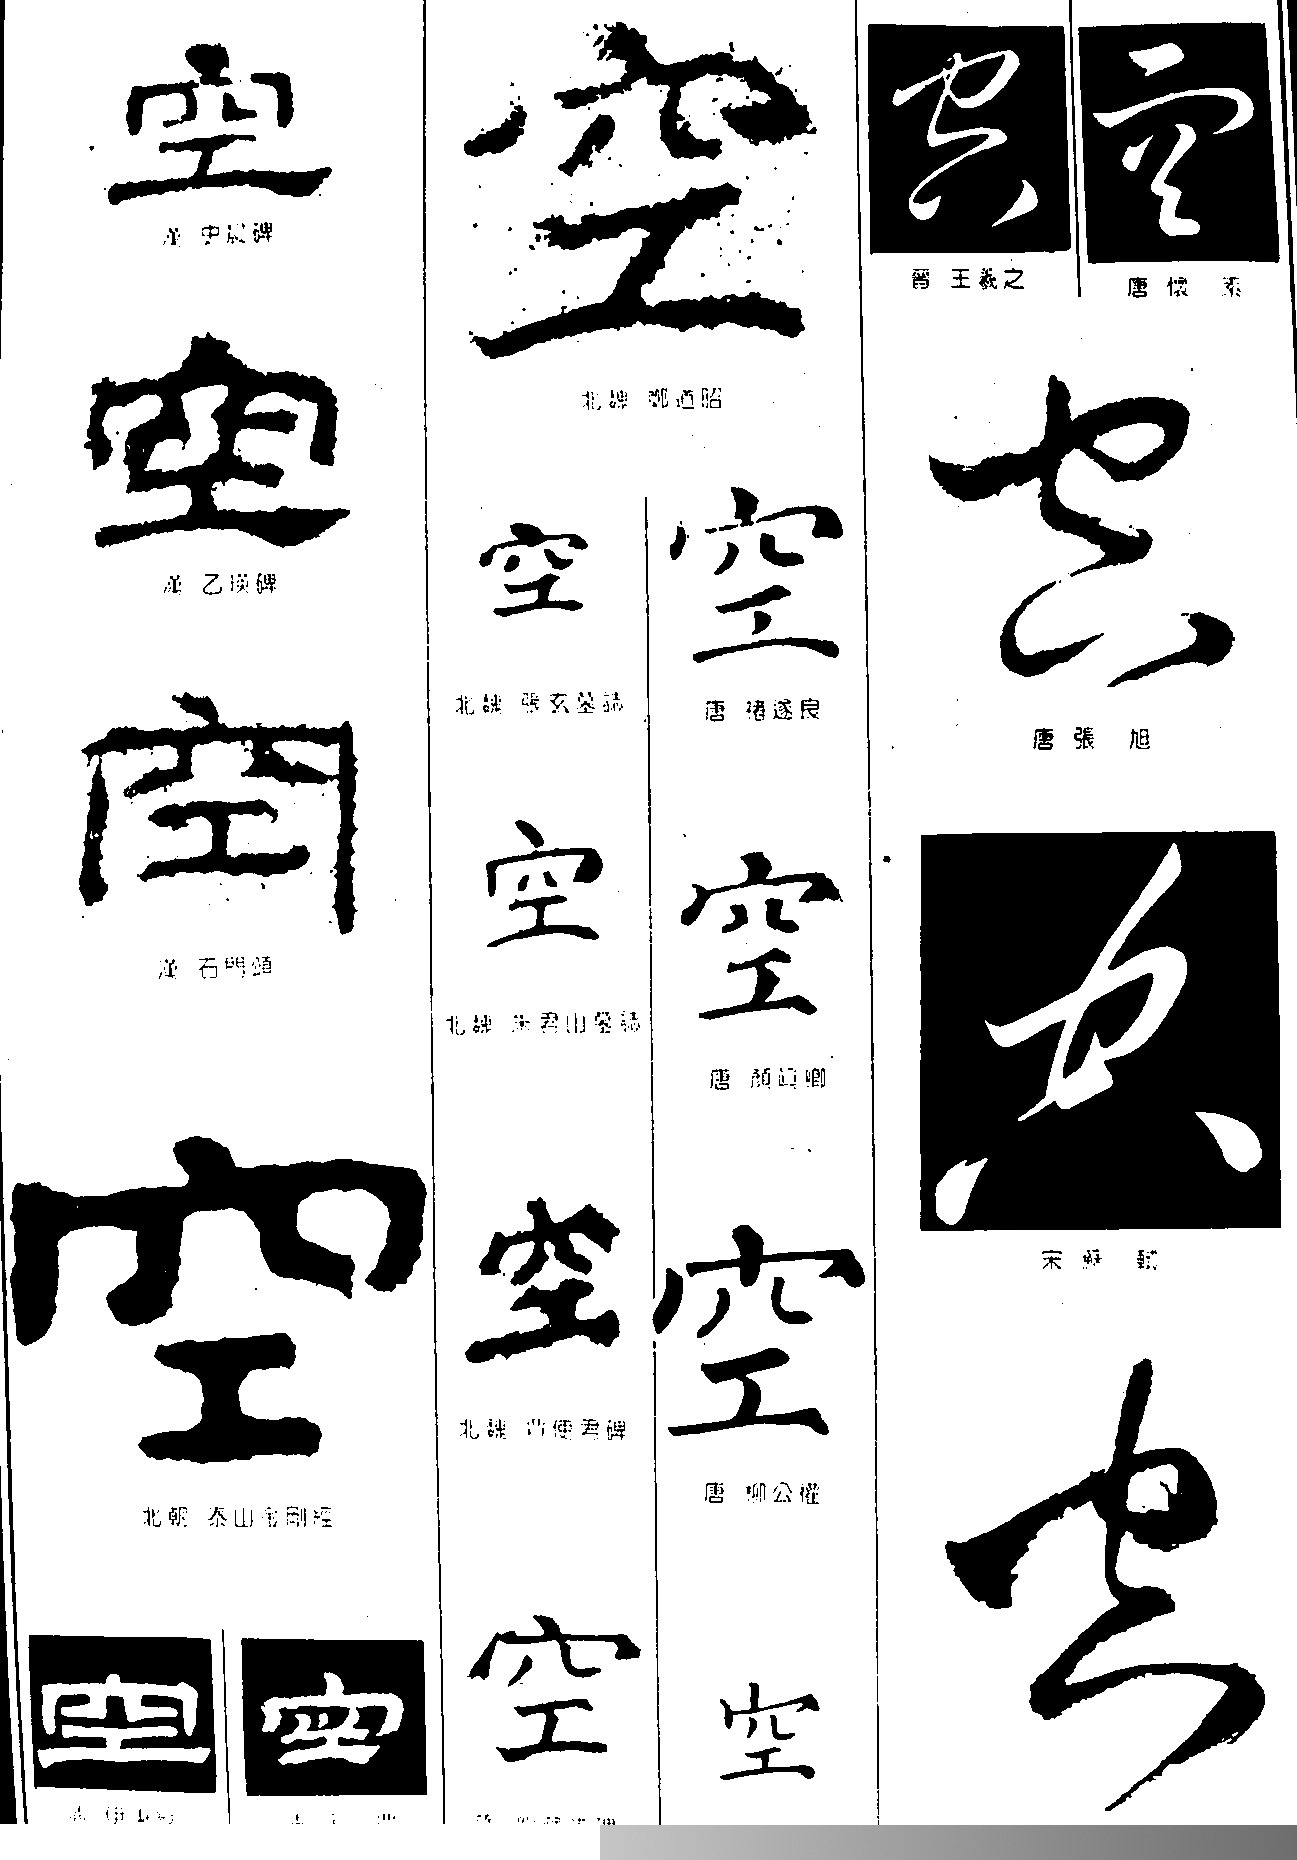 空
漢 史晨碑
空
漢 乙瑛碑
空
漢 石門頌
空
北朝 泰山金剛經
空
空
空
北魏 鄭道昭
空
北魏 張玄墓誌
空
北魏 朱君山墓誌
空
北魏
使君碑
空
空
唐 褚遂良
空
唐 顏眞卿
空
唐 柳公權
空
空
晉 王羲之
空
唐 懷 素
空
唐 張 旭
空
宋 蘇 軾
空